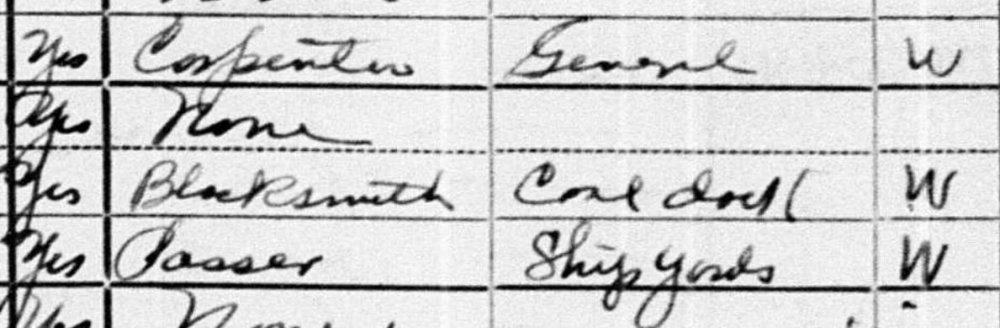 Yes Carpenter General W
Yes None
Yes Blacksmith Coal dock W
Yes Passer Ship yards W
Yes None